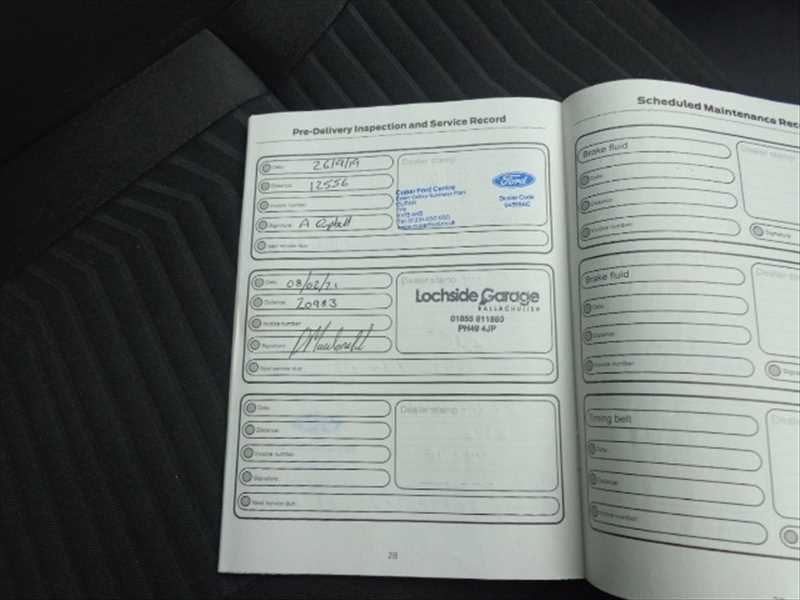 Pre-Delivery Inspection and Service Record
Date 26/9/19
Distance 12556
Invoice number
Signature A
Next service due
Dealer stamp
Ford Centre
CUPAR
Fife
Ford
Dealer Code
Date 08/02/21
Distance 20983
Invoice number
Signature
Next service due
Dealer stamp
Lochside Garage
BALLACHULISH
01855 811880
PH49 4JP
Date
Distance
Invoice number
Signature
Next service due
Dealer stamp
28
Scheduled Maintenance Rec
Brake fluid
Date
Distance
Invoice number
Dealer stamp
Signature
Brake fluid
Date
Distance
Invoice number
Dealer
Signa
Timing belt
Date
Distance
Invoice number
Dealer